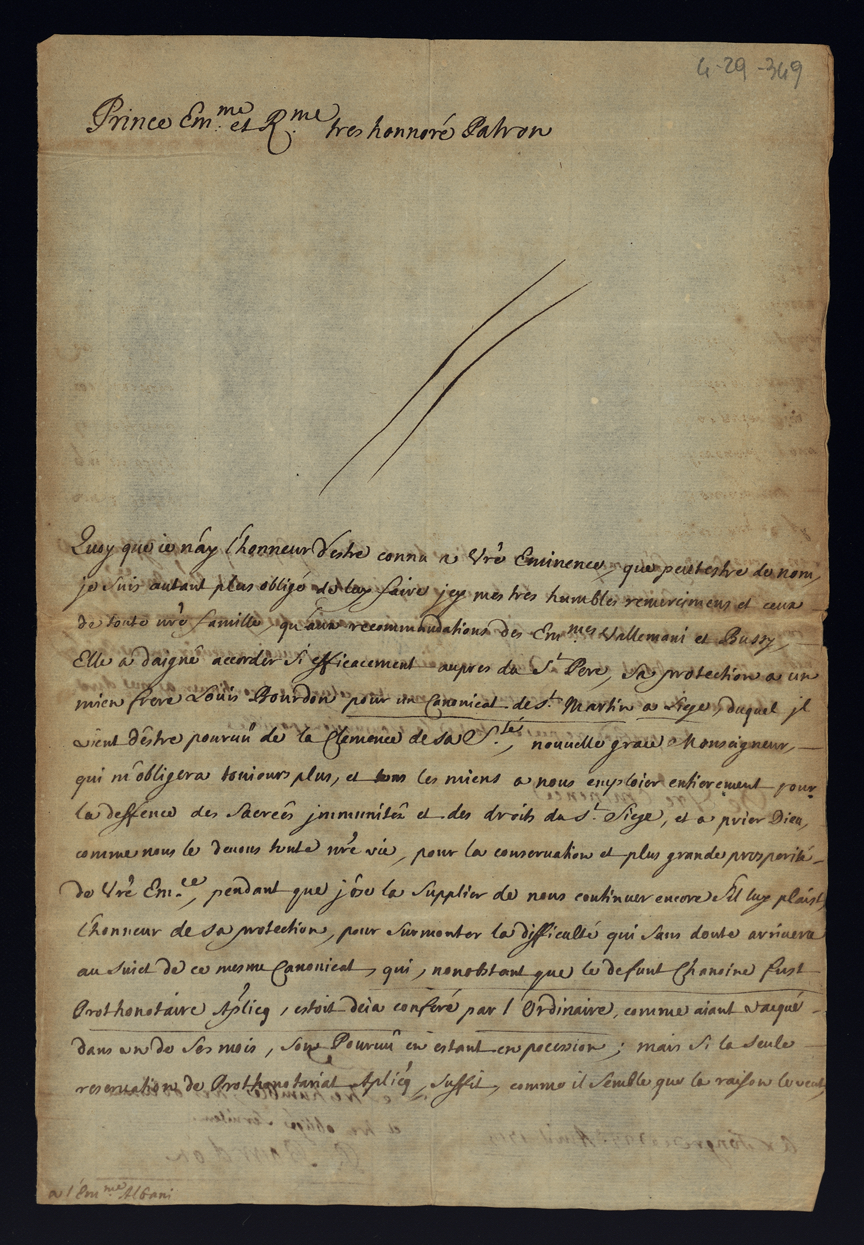 4-29-349
Prince Em.me et R.me tres honnoré Patron
Quoy que ie n'ay l'honneur d'estre connu a Vrẽ Eminence, que peutestre de nom,
je suis autant plus obligé de luy faire icy mes tres humbles remercimens et ceux
de toute nrẽ famille, qu'aux recommandations des Em.mes Vallemani et Bussy,
Elle a daigné accorder si efficacement aupres du St Pere, sa protection a un
mien frere Louis Bourdon pour un Canonicat de St. Martin a Liege, duquel jl
vient d'estre pourvû de la Clemence de sa S.té, nouvelle grace Monseigneur,
qui m'obligera toujours plus, et tous les miens a nous emploier entierement pour
la deffence des Sacreés jmmunitéz et des droits du St. Siege, et a prier Dieu,
comme nous le devons toute nrẽ vie, pour la conservation et plus grande prosperité
de Vrẽ Em.ce, pendant que j'ose la Supplier de nous continuer encore s'il luy plaist,
l'honneur de sa protection, pour surmonter la difficulté qui sans doute arrivera
au suiet de ce mesme Canonicat, qui, nonobstant que le defunt Chanoine fust
Prothonotaire Aplicq, estoit deia conferé par l'Ordinaire, comme aiant vacqué
dans un de ses mois, son Pourvû en estant en pocession; mais si la seule
reservation de Prothonotariat Aplicq, suffit, comme il semble que la raison le veut,
a l'Em.me Albani